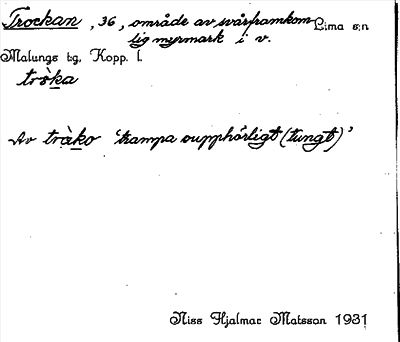 Trockan, 36, område av svårframkom- Lima s:n
lig myrmark i v.
Malungs tg, Kopp. l.
tròka
Av tràko 'trampa oupphörligt (tungt)'
Niss Hjalmar Matsson 1931